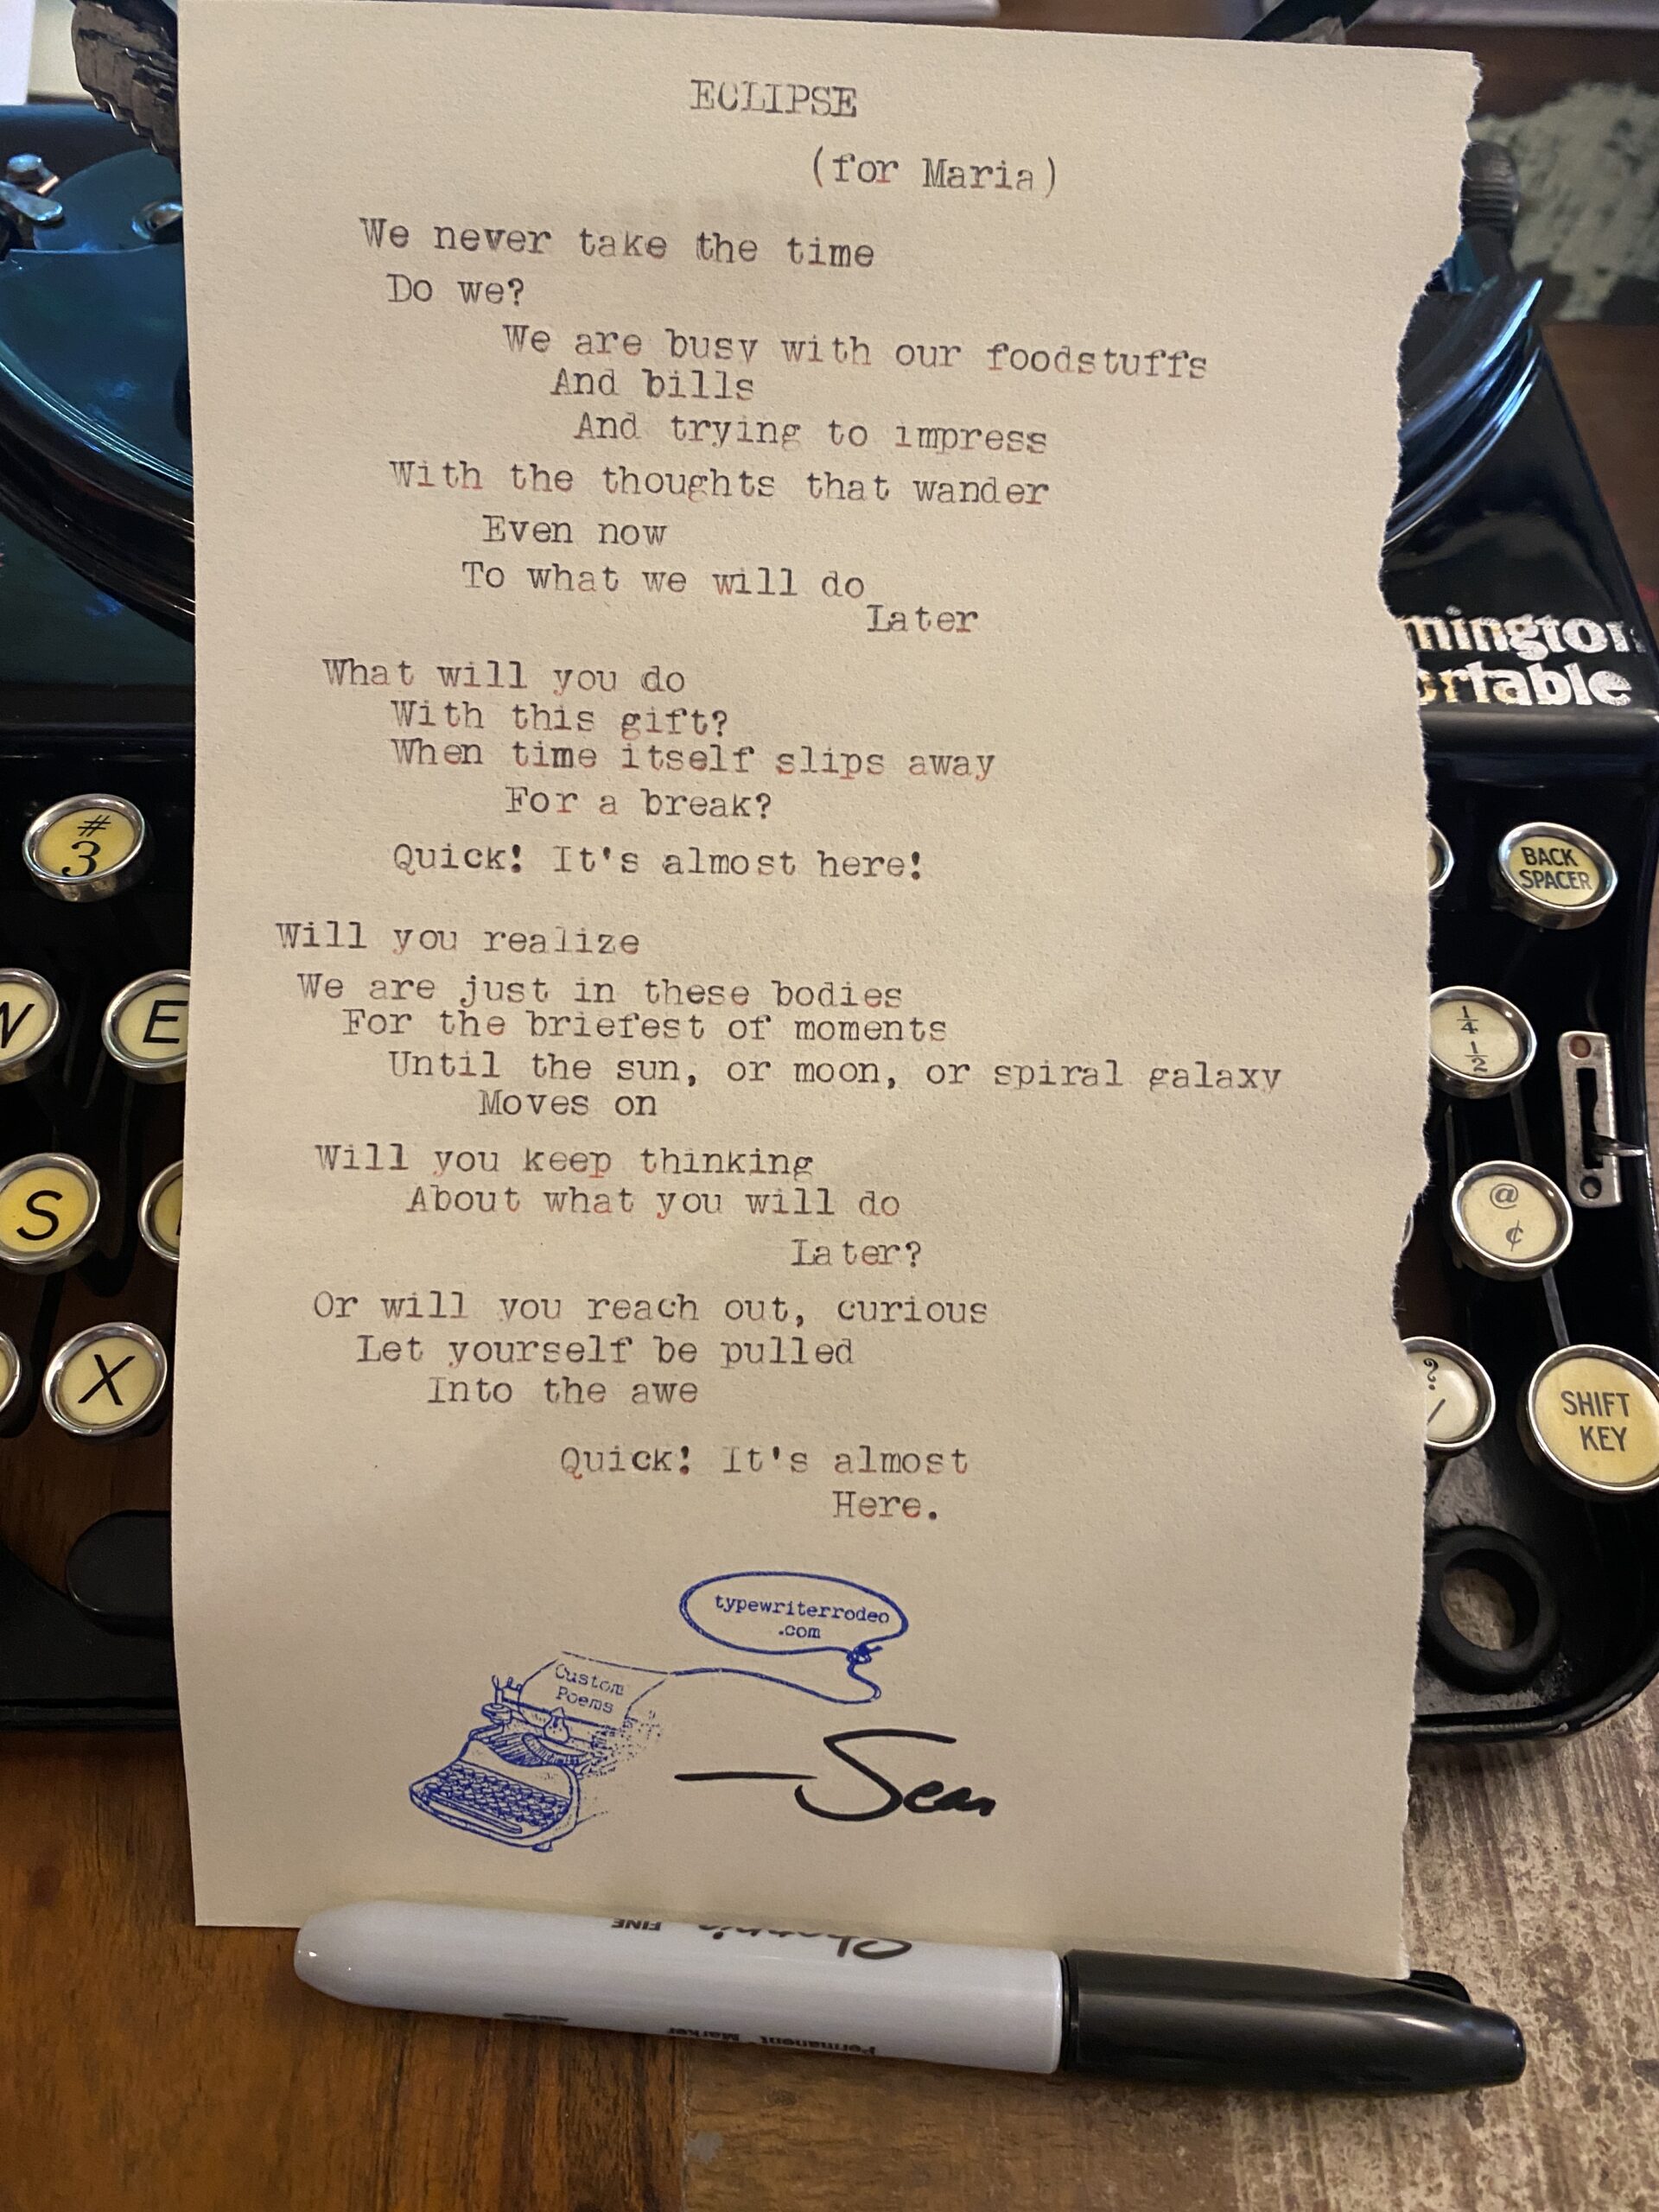 ECLIPSE
(for Maria)
We never take the time
Do we?
We are busy with our foodstuffs
And bills
And trying to impress
With the thoughts that wander
Even now
To what we will do
Later
What will you do
With this gift?
When time itself slips away
For a break?
Quick! It's almost here!
Will you realize
We are just in these bodies
For the briefest of moments
Until the sun, or moon, or spiral galaxy
Moves on
Will you keep thinking
About what you will do
Later?
Or will you reach out, curious
Let yourself be pulled
Into the awe
Quick! It's almost
Here.
typewriterrodeo
.com
Custom
Poems
—Sean
mington
ortable
#
3
BACK
SPACER
W
E
1/4
1/2
S
@
¢
X
?
/
SHIFT
KEY
Sharpie
FINE
Permanent Marker